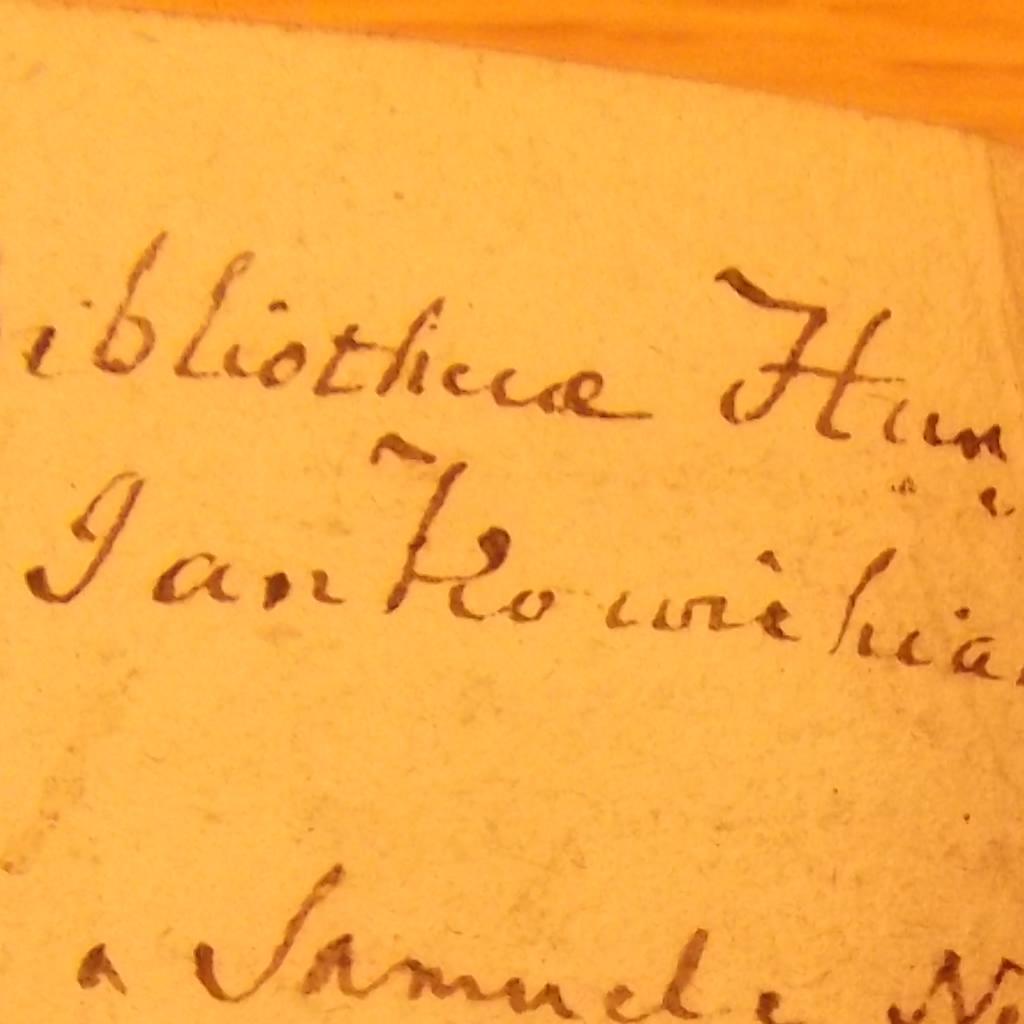 ibliothecæ Hun
Jankowichia
a Samuele N